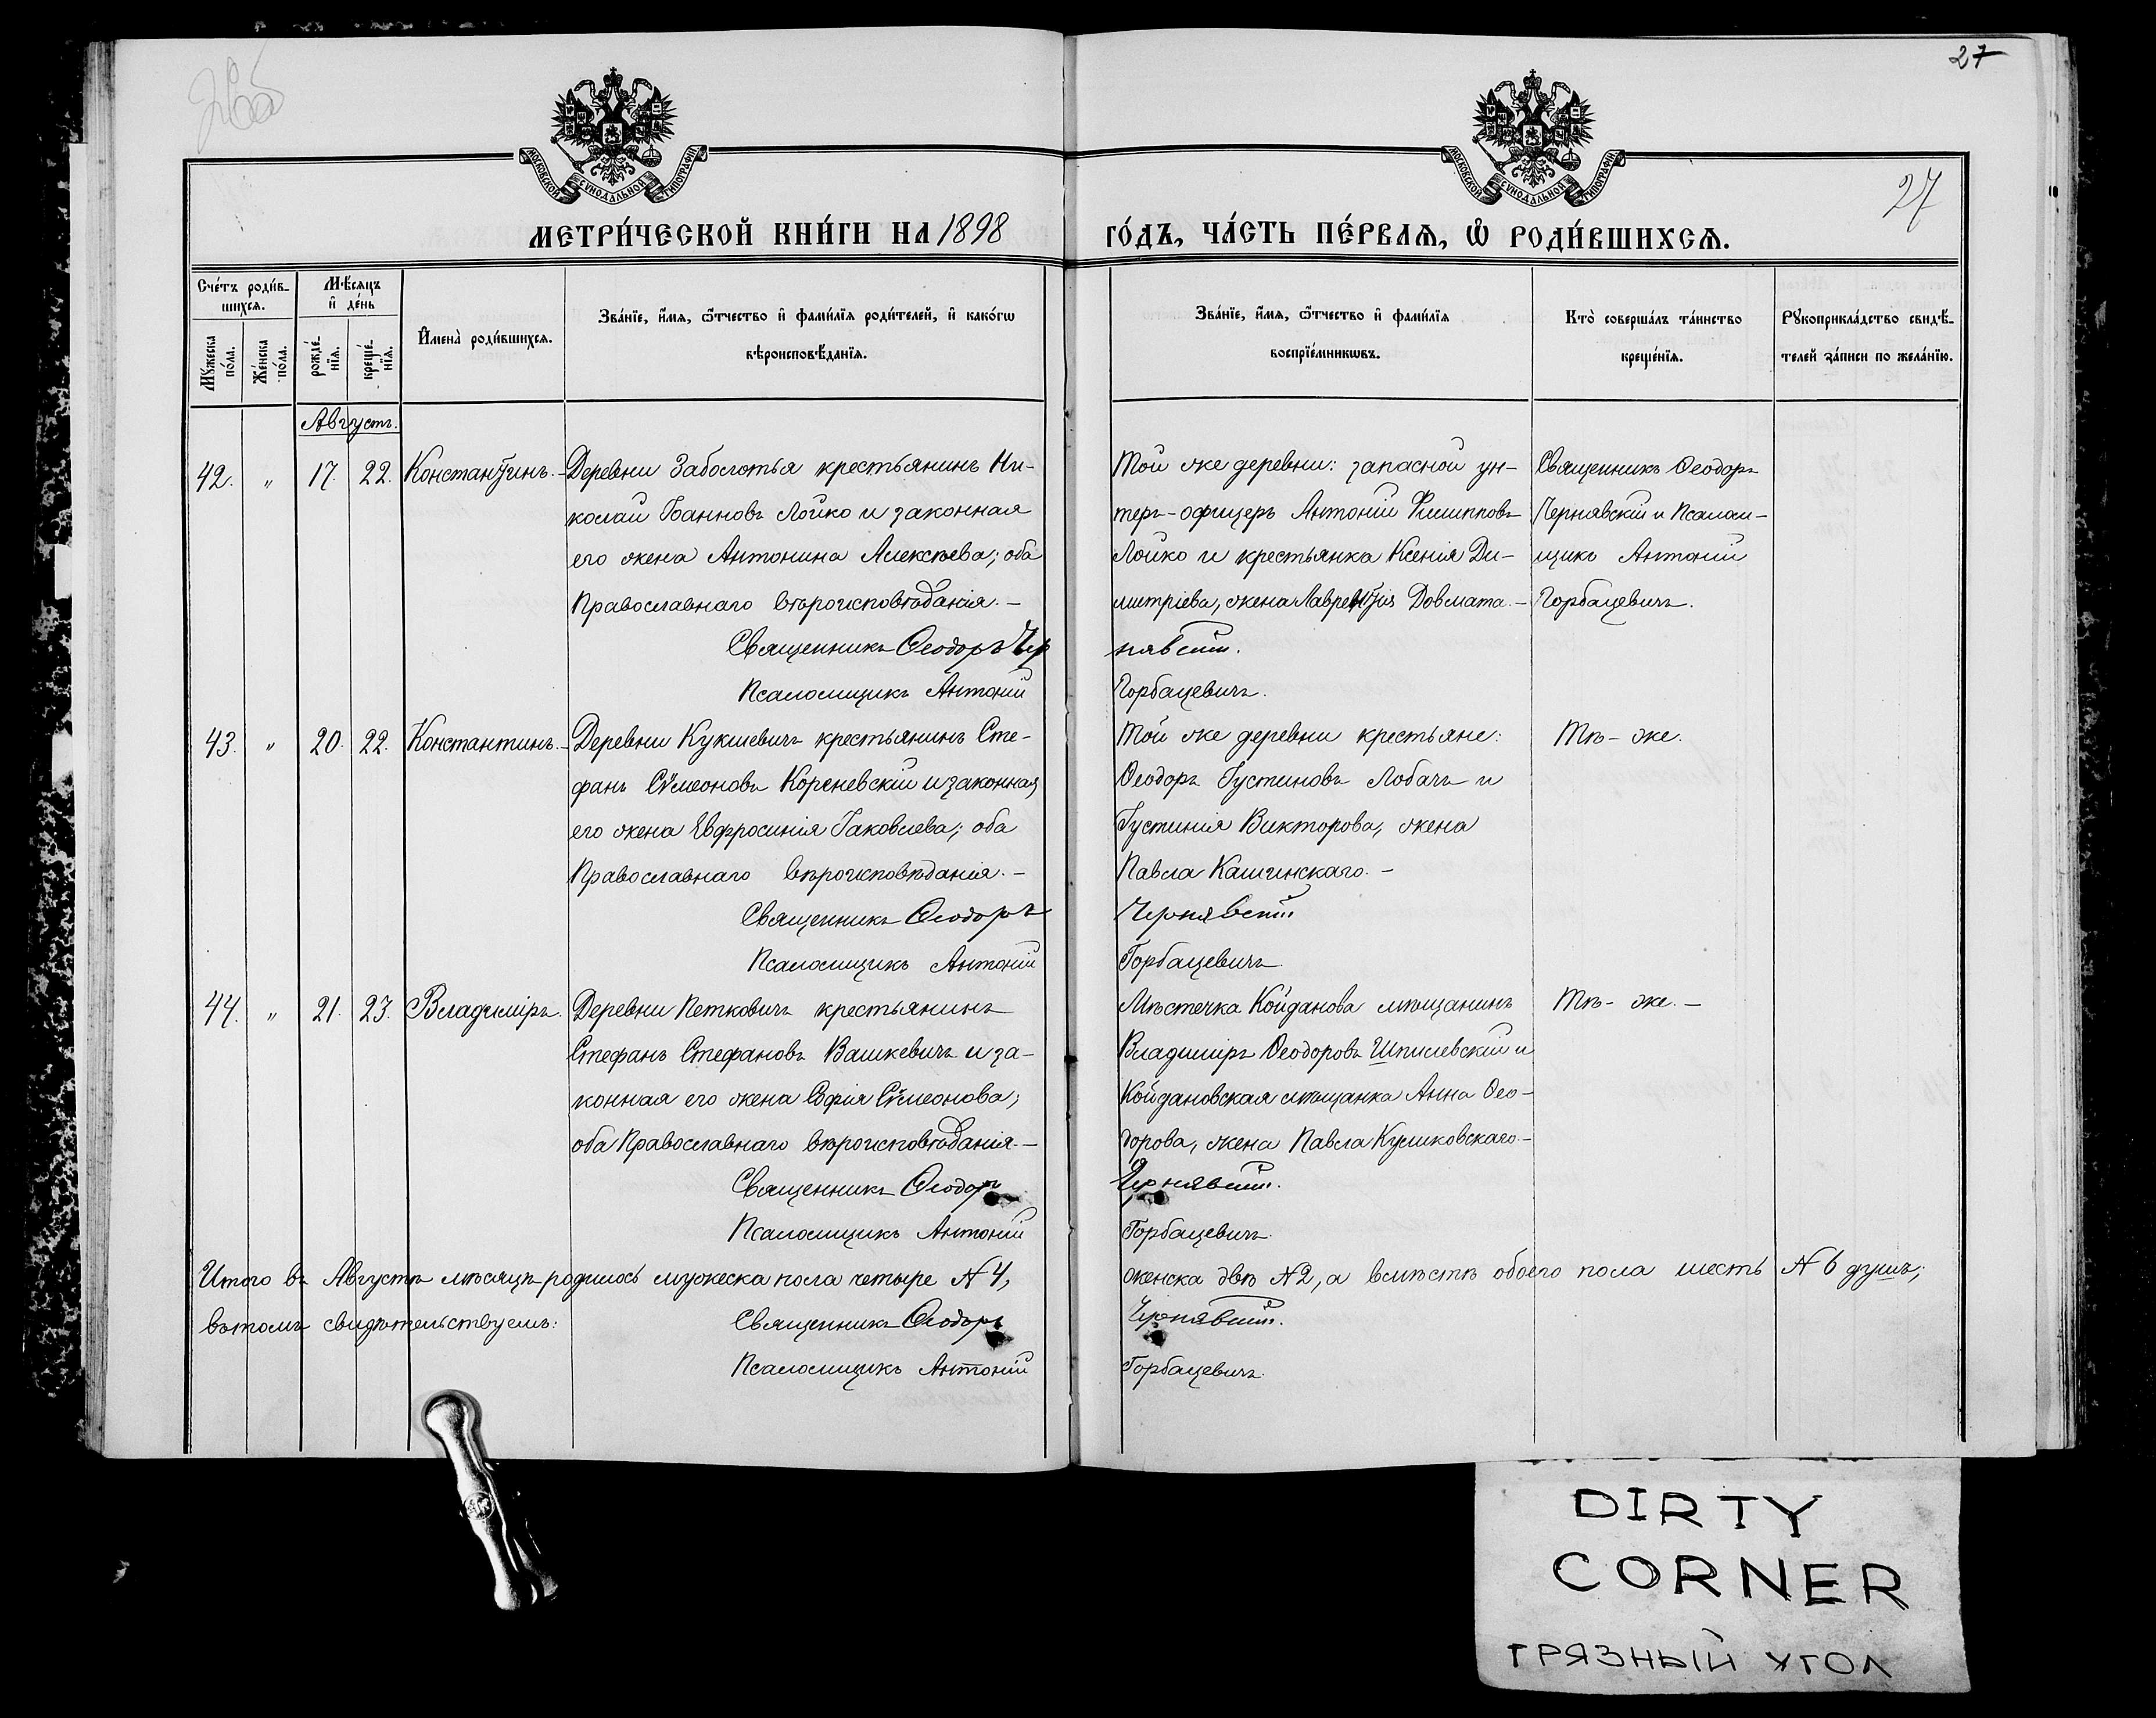 27
МОСКОВСКОЙ СѴНОДАЛЬНОЙ ТИПОГРАФІИ
МОСКОВСКОЙ СѴНОДАЛЬНОЙ ТИПОГРАФІИ
27
МЕТРИ́ЧЕСКОЙ КНИ́ГИ НА 1898
ГО́ДЪ, ЧА́СТЬ ПЕ́РВАѦ, Ѡ҆ РОДИ́ВШИХСѦ.
Сче́тъ роди́в-
шихсѧ.
Мꙋ́жеска по́ла.
Же́нска по́ла.
Мѣ́сѧцъ
и҆ де́нь
рожде́-нїѧ.
креще́-нїѧ.
И҆мена̀ роди́вшихсѧ.
Зва́нїе, и҆́мѧ, ѻ҆́тчество и҆ фами́лїѧ роди́телей, и҆ како́гѡ
вѣроисповѣ́данїѧ.
Зва́нїе, и҆́мѧ, ѻ҆́тчество и҆ фами́лїѧ
воспрїе́мникѡвъ.
Кто̀ соверша́лъ та́инство
креще́нїѧ.
Рꙋкоприкла́дство свидѣ́-
телей за́писи по жела́нїю.
Августъ.
42. " 17. 22. Константинъ.-
Деревни Заболотья крестьянинъ Ни-
колай Іоанновъ Лойко и законная
его жена Антонина Алексѣева; оба
Православнаго вѣроисповѣданія.-
Той же деревни: запасной ун-
теръ-офицеръ Антоній Филипповъ
Лойко и крестьянка Ксенія Ди-
митріева, жена Лаврентія Довмата.-
Священникъ Ѳеодоръ
Чернявскій и Псалом-
щикъ Антоній
Горбацевичъ.
Священникъ Ѳеодоръ Чернявскій.
Псаломщикъ Антоній Горбацевичъ.
43. " 20. 22. Константинъ.-
Деревни Кукшевичъ крестьянинъ Сте-
фанъ Сѵмеоновъ Кореневскій и законная
его жена Евфросинія Іаковлева; оба
Православнаго вѣроисповѣданія.-
Той же деревни крестьяне:
Ѳеодоръ Іустиновъ Лобачъ и
Іустинія Викторова, жена
Павла Кашинскаго.-
Тѣ-же.
Священникъ Ѳеодоръ Чернявскій
Псаломщикъ Антоній Горбацевичъ.
44. " 21. 23. Владиміръ.
Деревни Петковичъ крестьянинъ
Стефанъ Стефановъ Вашкевичъ и за-
конная его жена Софія Сѵмеонова;
оба Православнаго вѣроисповѣданія.-
Мѣстечка Койданова мѣщанинъ
Владиміръ Ѳеодоровъ Шпилевскій и
Койдановская мѣщанка Анна Ѳео-
дорова, жена Павла Куликовскаго.-
Тѣ-же.-
Священникъ Ѳеодоръ Чернявскій.
Псаломщикъ Антоній Горбацевичъ.
Итого въ Августѣ мѣсяцѣ родилось мужеска пола четыре №4, женска двѣ №2, а вмѣстѣ обоего пола шесть №6 душъ;
въ томъ свидѣтельствуемъ:
Священникъ Ѳеодоръ Чернявскій.
Псаломщикъ Антоній Горбацевичъ.
DIRTY
CORNER
ГРЯЗНЫЙ УГОЛ